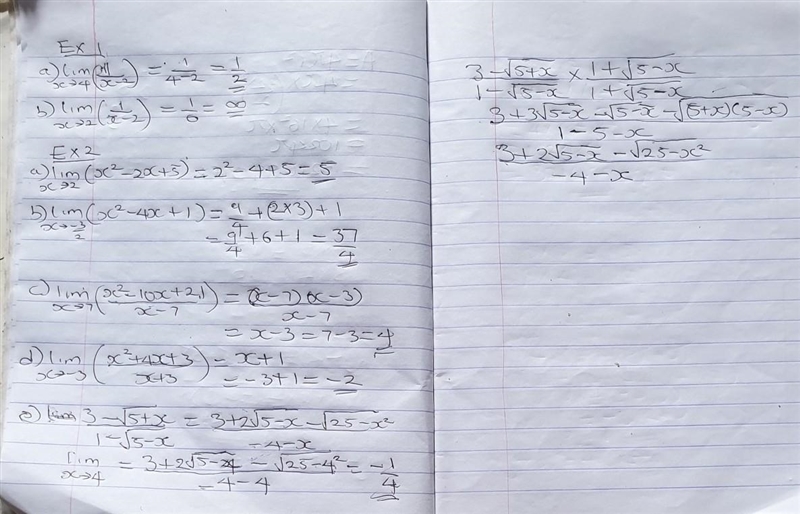 Ex 1
a) lim x→4 (1/(x-2)) = 1/(4-2) = 1/2
b) lim x→2 (1/(x-2)) = 1/0 = ∞
Ex 2
a) lim x→2 (x²-2x+5) = 2²-4+5 = 5
b) lim x→-3/2 (x²-4x+1) = 9/4 + (2×3) + 1
= 9/4 + 6 + 1 = 37/4
c) lim x→7 ((x²-10x+21)/(x-7)) = (x-7)(x-3)/(x-7)
= x-3 = 7-3 = 4
d) lim x→-3 ((x²+4x+3)/(x+3)) = x+1
= -3+1 = -2
e) lim (3-√(5+x))/(1-√(5-x)) = (3+2√(5-x)-√(25-x²))/(-4-x)
lim x→4 = (3+2√(5-x4)-√(25-4²))/(-4-4) = -1/4
(3-√(5+x))/(1-√(5-x)) × (1+√(5-x))/(1+√(5-x))
(3+3√(5-x)-√(5-x)-√((5+x)(5-x)))/(1-5-x)
(3+2√(5-x)-√(25-x²))/(-4-x)